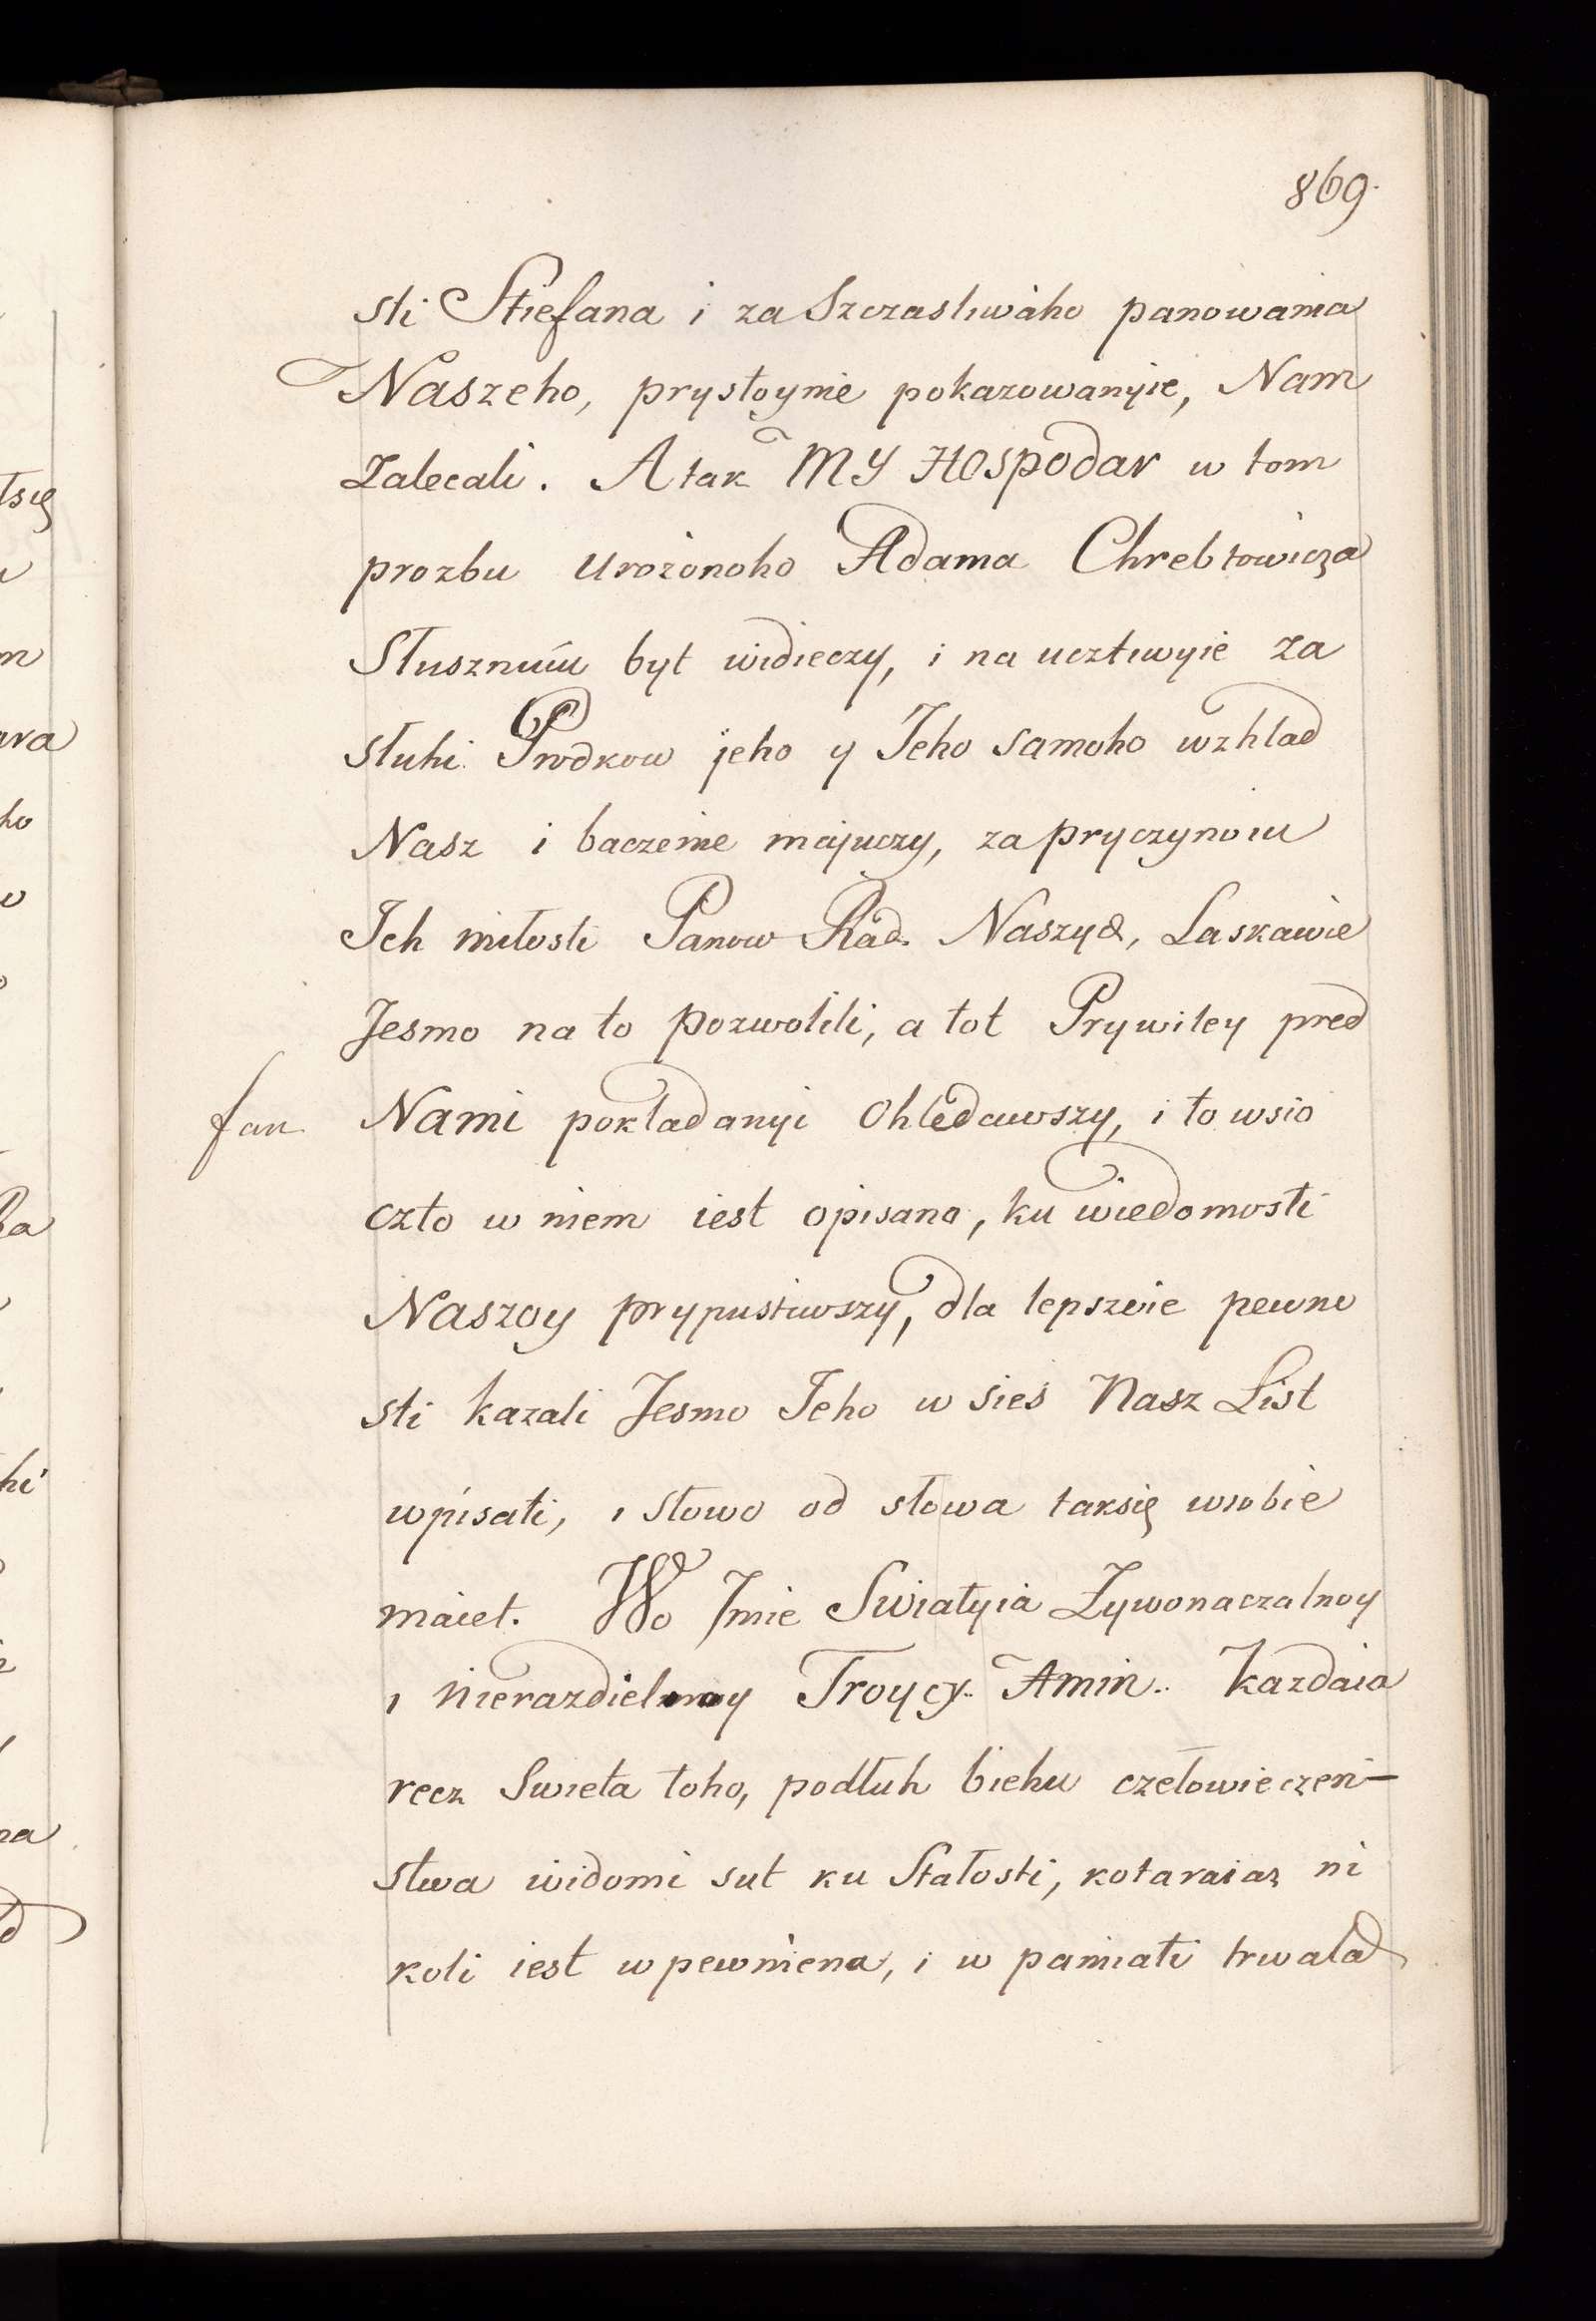 869.
sti Stiefana i za Szczasliwaho panowania
Naszeho, prystoynie pokazowanyie, Nam
Zalecali. A tak MY Hospodar w tom
prozbu Urożonoho Adama Chrebtowicza
Słusznuiu być widieczy, i na ucztiwyie za
słuhi Prodkow jeho y Jeho samoho wzhlad
Nasz i baczenie majuczy, za pryczynoiu
Ich miłosti Panow Rad Naszych, Laskawie
Jesmo na to pozwolili, a tot Prywiley pred
fan Nami pokładanyi Ohledawszy, i to wsio
czto w niem iest opisano, ku wiedomosti
Naszoy prypustiwszy, dla lepszoie pewno
sti kazali Jesmo Jeho w sieś Nasz List
wpisati, i Słowo od słowa taksię wsobie
maiet. Wo Imie Swiatyia Zywonaczalnoy
i nierazdielnoy Troycy. Amin. Kazdaia
recz Swieta toho, podłuh biehu czełowieczen-
stwa widomi sut ku Stałosti, kotaraiaz ni
koli iest wpewniena, i w pamiati trwała
łsię
ara
ho
hi
na